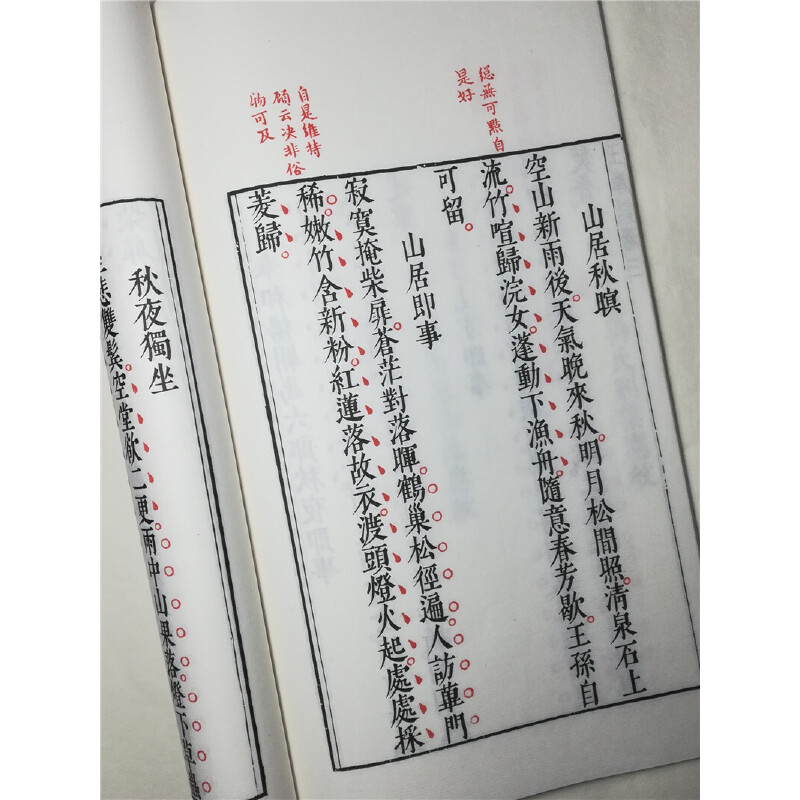 總無可點自
是好
自是維持
顧云决非俗
可及
山居秋暝
空山新雨後天氣晚來秋明月松間照清泉石上
流竹喧歸浣女蓬動下漁舟隨意春芳歇王孫自
可留
山居即事
寂寞掩柴扉蒼茫對落暉鶴巢松徑遍人訪蓽門
稀嫩竹含新粉紅蓮落故衣渡頭燈火起處處採
菱歸
秋夜獨坐
悲雙鬢空堂欲二更雨中山果落燈下草